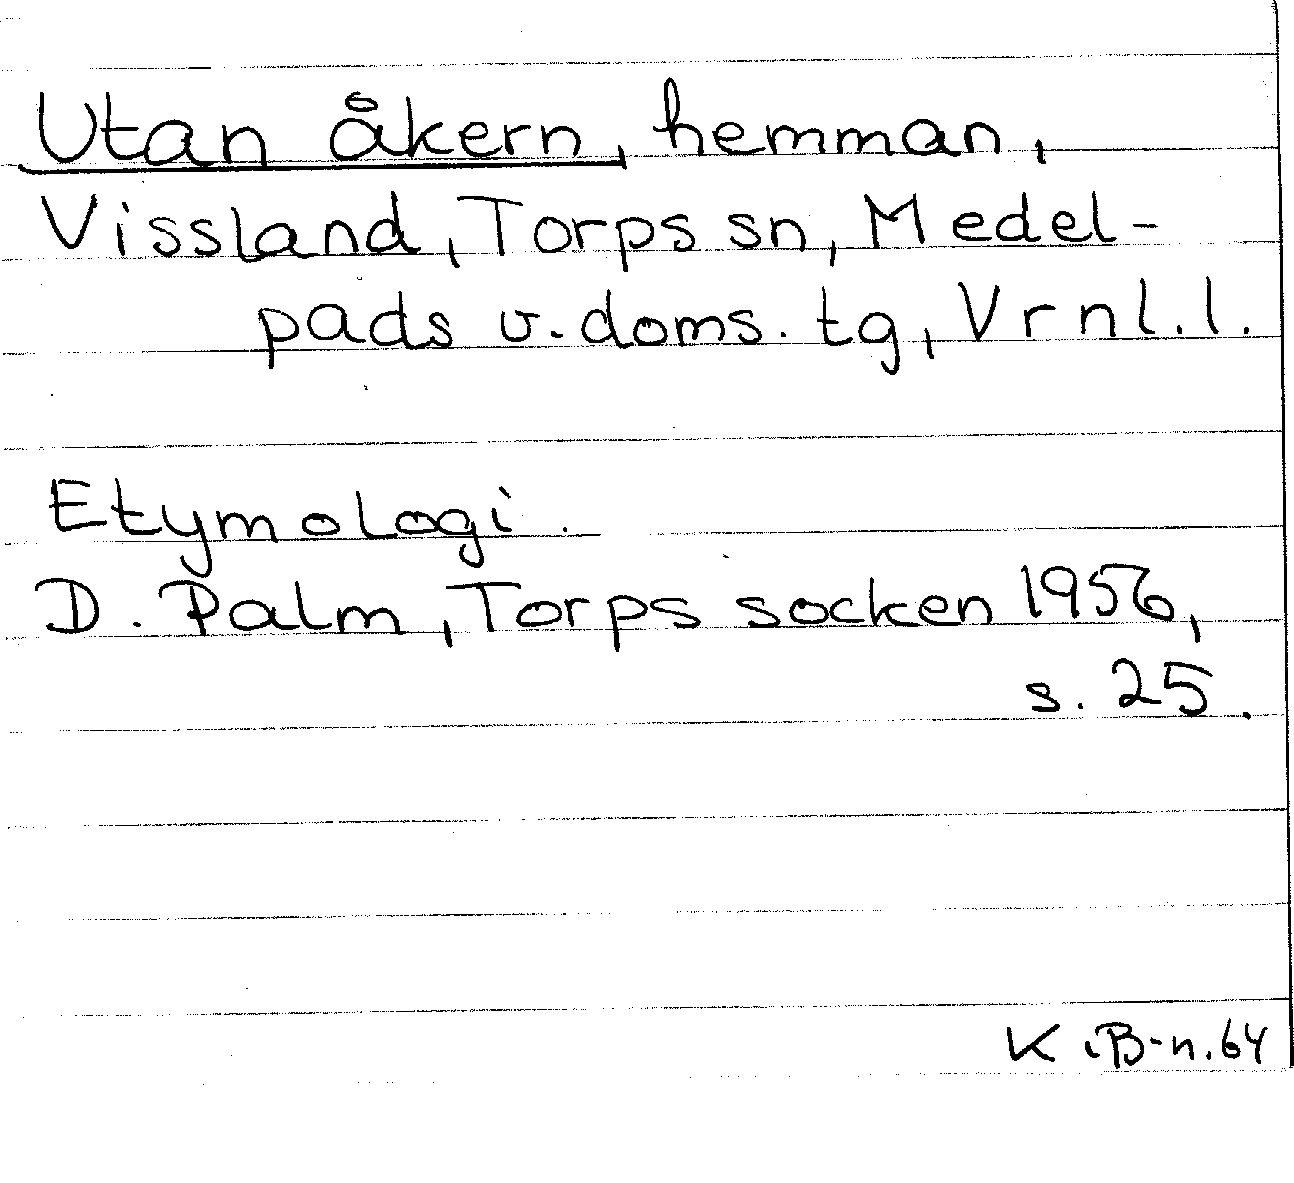 Utan åkern, hemman,
Vissland, Torps sn, Medel-
pads v. doms. tg, Vrnl. l.
Etymologi.
D. Palm, Torps socken 1956,
s. 25.
K. B-n. 64